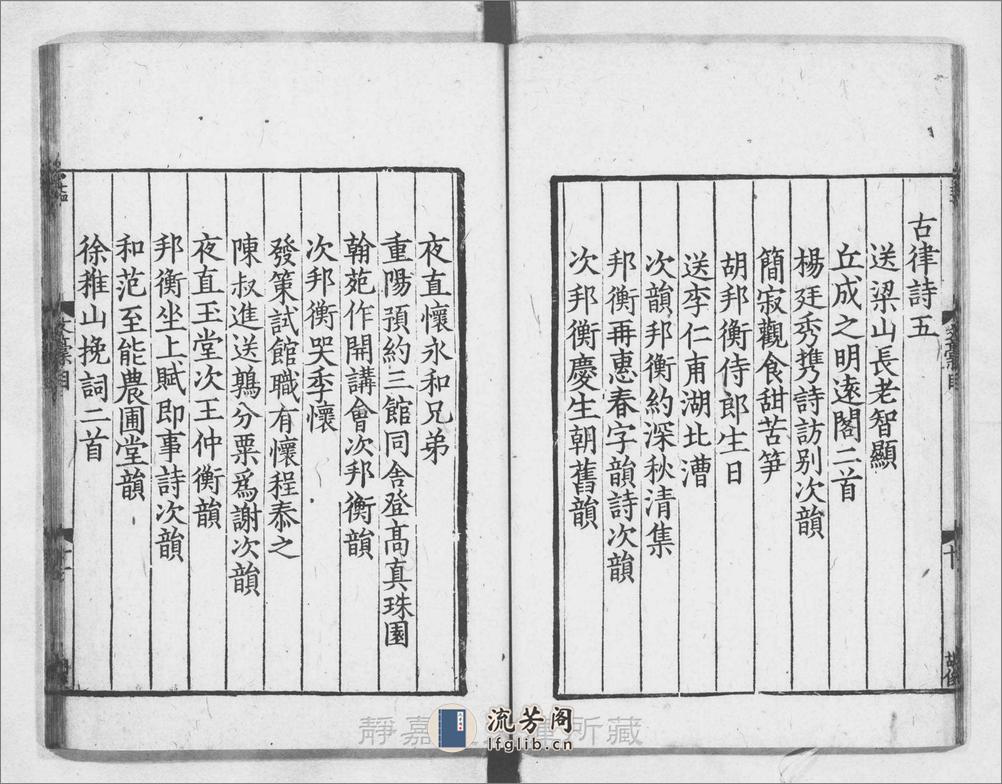 古律詩五
送梁山長老智顯
丘成之明遠閣二首
楊廷秀携詩訪别次韻
簡寂觀食甜苦笋
胡邦衡侍郎生日
送李仁甫湖北漕
次韻邦衡約深秋清集
邦衡再惠春字韻詩次韻
次邦衡慶生朝舊韻
夜直懷永和兄弟
重陽預約三館同舍登髙真珠園
翰苑作開講會次邦衡韻
次邦衡哭季懷
發策試館職有懷程泰之
陳叔進送鶉分粟爲謝次韻
夜直玉堂次王仲衡韻
邦衡坐上賦即事詩次韻
和范至能農圃堂韻
徐稚山挽詞二首
十
十一
靜嘉
所藏
流芳阁
lfglib.cn